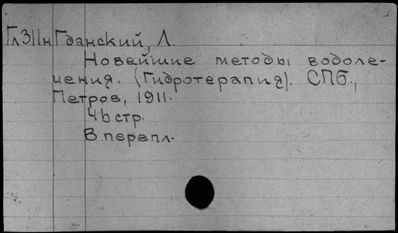 Гл311н Гданский, Л.
Новейшие методы водоле-
чения. (Гидротерапия). СПб.,
Петров, 1911.
46 стр.
В перепл.